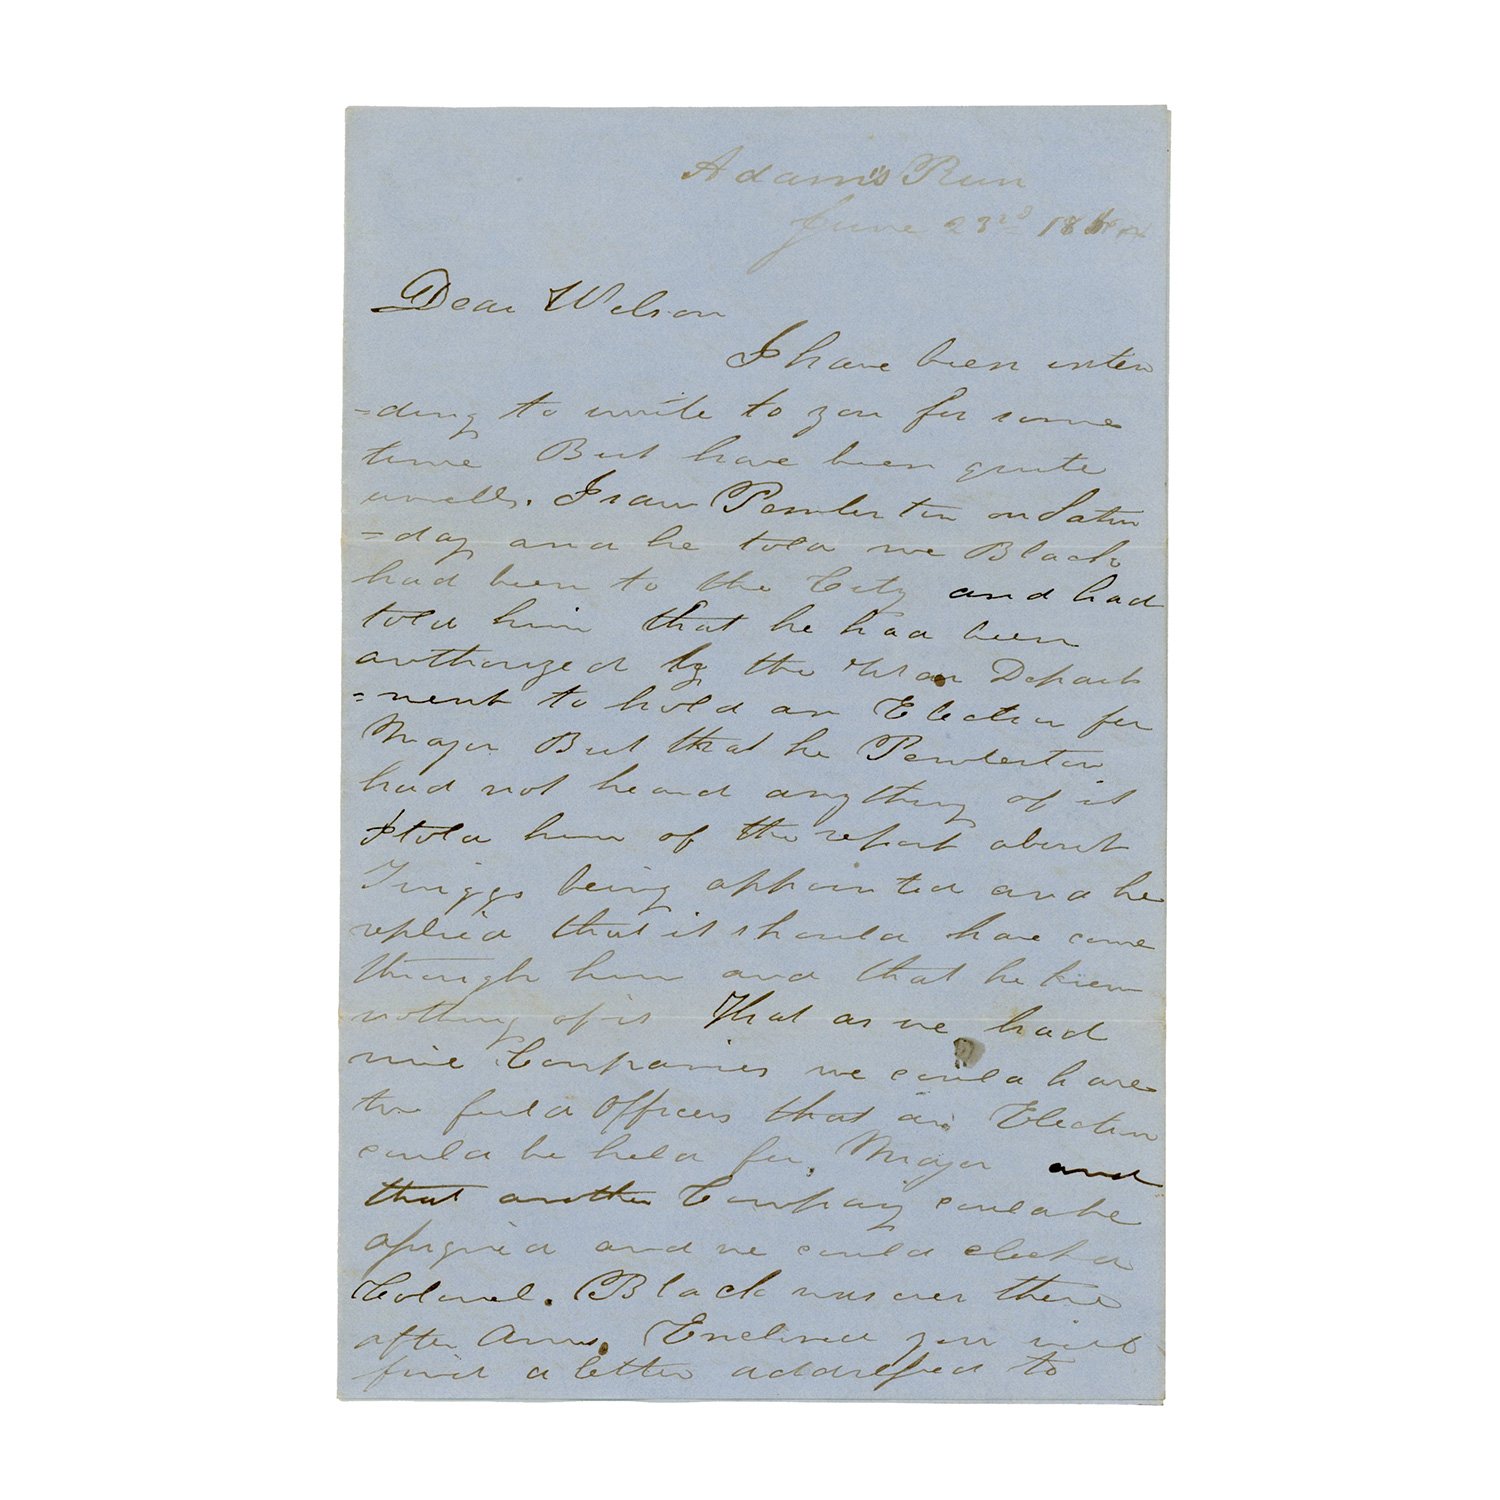 Adam's Run
June 23rd 186
Dear Wilson
I have been inten
=ding to write to you for some
time But have been quite
unwell. I saw Pemberton on Satur
=day and he told me Black
had been to the City and had
told him that he had been
authorized by the War Depart
=ment to hold an Election for
Major But that he Pemberton
had not heard anything of it
I told him of the report about
Twiggs being appointed and he
replied that it should have come
through him and that he knew
nothing of it That as we had
nine Companies we could have
two field officers that an Election
could be held for, Major and
that another Company could be
assigned and we could elect a
Colonel. Black was over there
after Arms. Enclosed you will
find a letter addressed to